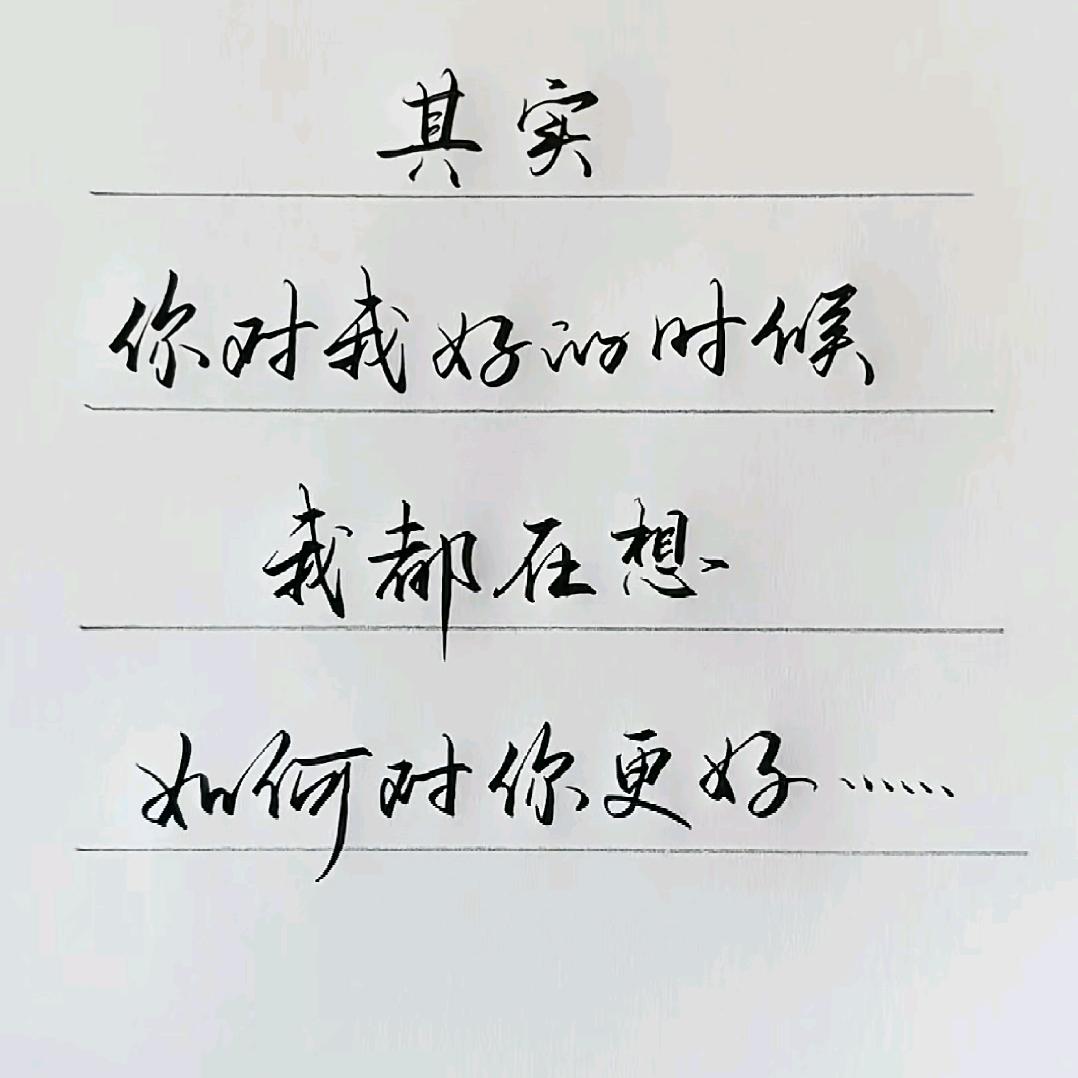 其实
你对我好的时候
我都在想
如何对你更好……